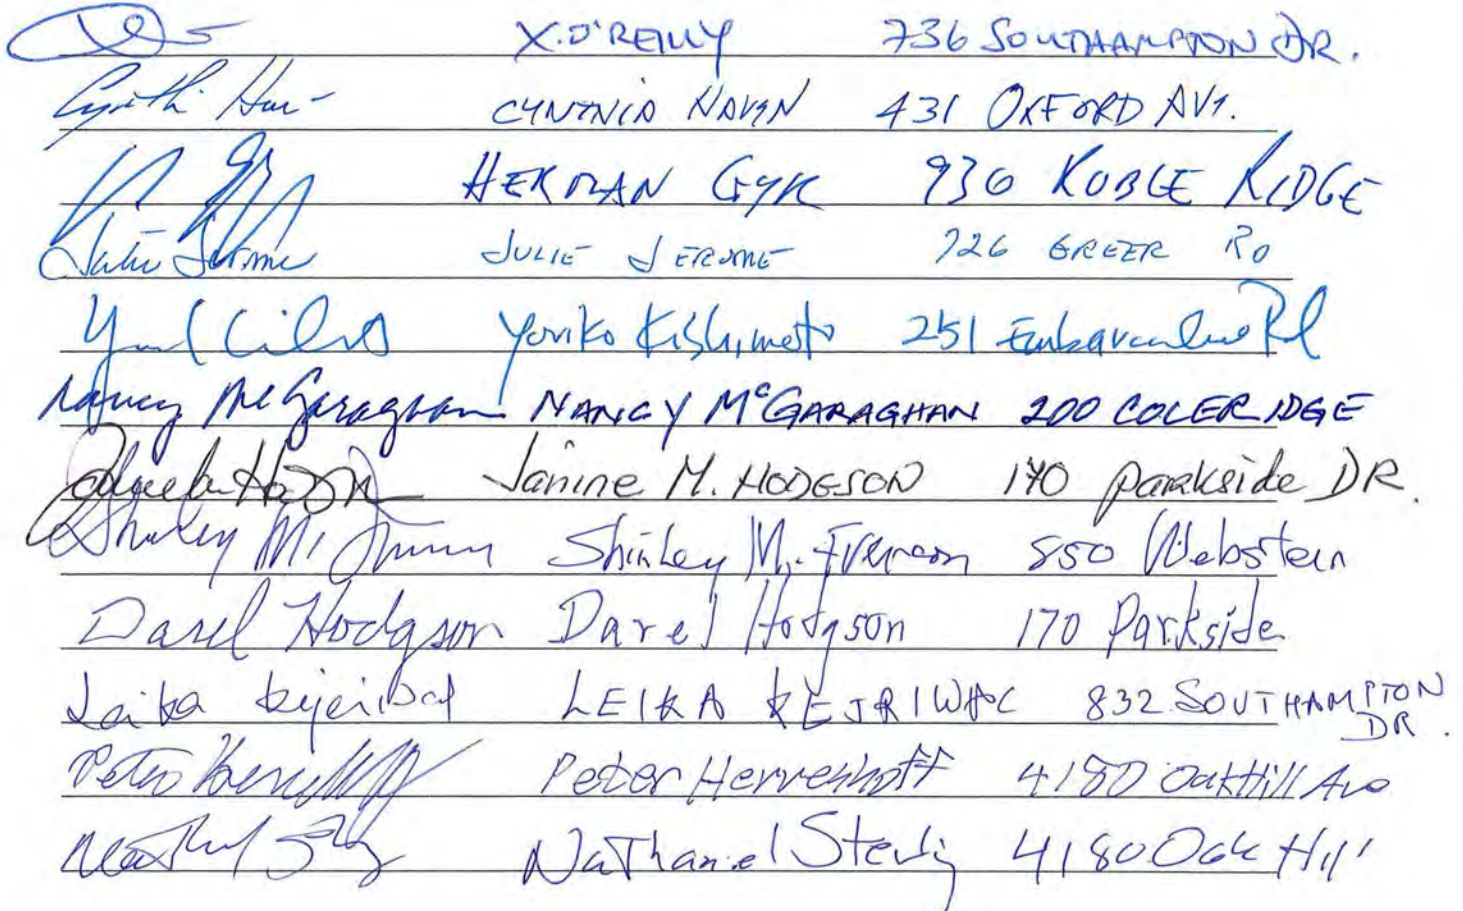 X. O'REILLY 736 SOUTHAMPTON DR.
CYNTHIA 431 OXFORD AVE.
HERMAN GYR 936 ROBLE RIDGE
Julie Jerome JULIE JEROME 726 GREER RD
Yoriko Kishimoto 251 Embarcadero Rd
Nancy McGaraghan NANCY McGARAGHAN 200 COLERIDGE
Janine M. HODGSON 170 parkside DR.
Shirley M. 850 Webster
Darel Hodgson Darel Hodgson 170 Parkside
Leika Kejriwal LEIKA KEJRIWAL 832 SOUTHAMPTON
DR.
Peter Herreshoff 4180 Oak Hill Ave
Nathaniel Sterling 4180 Oak Hill